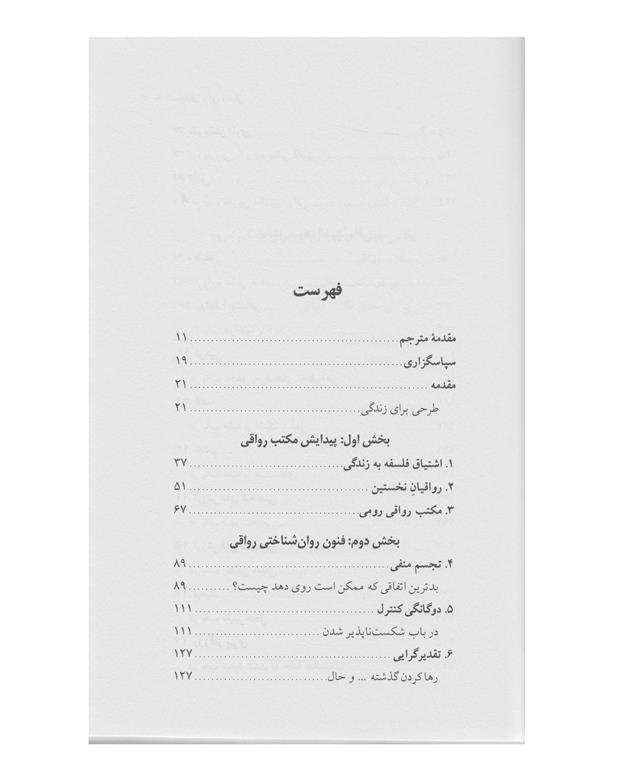 فهرست
مقدمهٔ مترجم ........ ۱۱
سپاسگزاری ........ ۱۹
مقدمه ........ ۲۱
طرحی برای زندگی ........ ۲۱
بخش اول: پیدایش مکتب رواقی
۱. اشتیاق فلسفه به زندگی ........ ۳۷
۲. رواقیانِ نخستین ........ ۵۱
۳. مکتب رواقی رومی ........ ۶۷
بخش دوم: فنون روان‌شناختی رواقی
۴. تجسم منفی ........ ۸۹
بدترین اتفاقی که ممکن است روی دهد چیست؟ ........ ۸۹
۵. دوگانگی کنترل ........ ۱۱۱
در باب شکست‌ناپذیر شدن ........ ۱۱۱
۶. تقدیرگرایی ........ ۱۲۷
رها کردن گذشته ... و حال ........ ۱۲۷